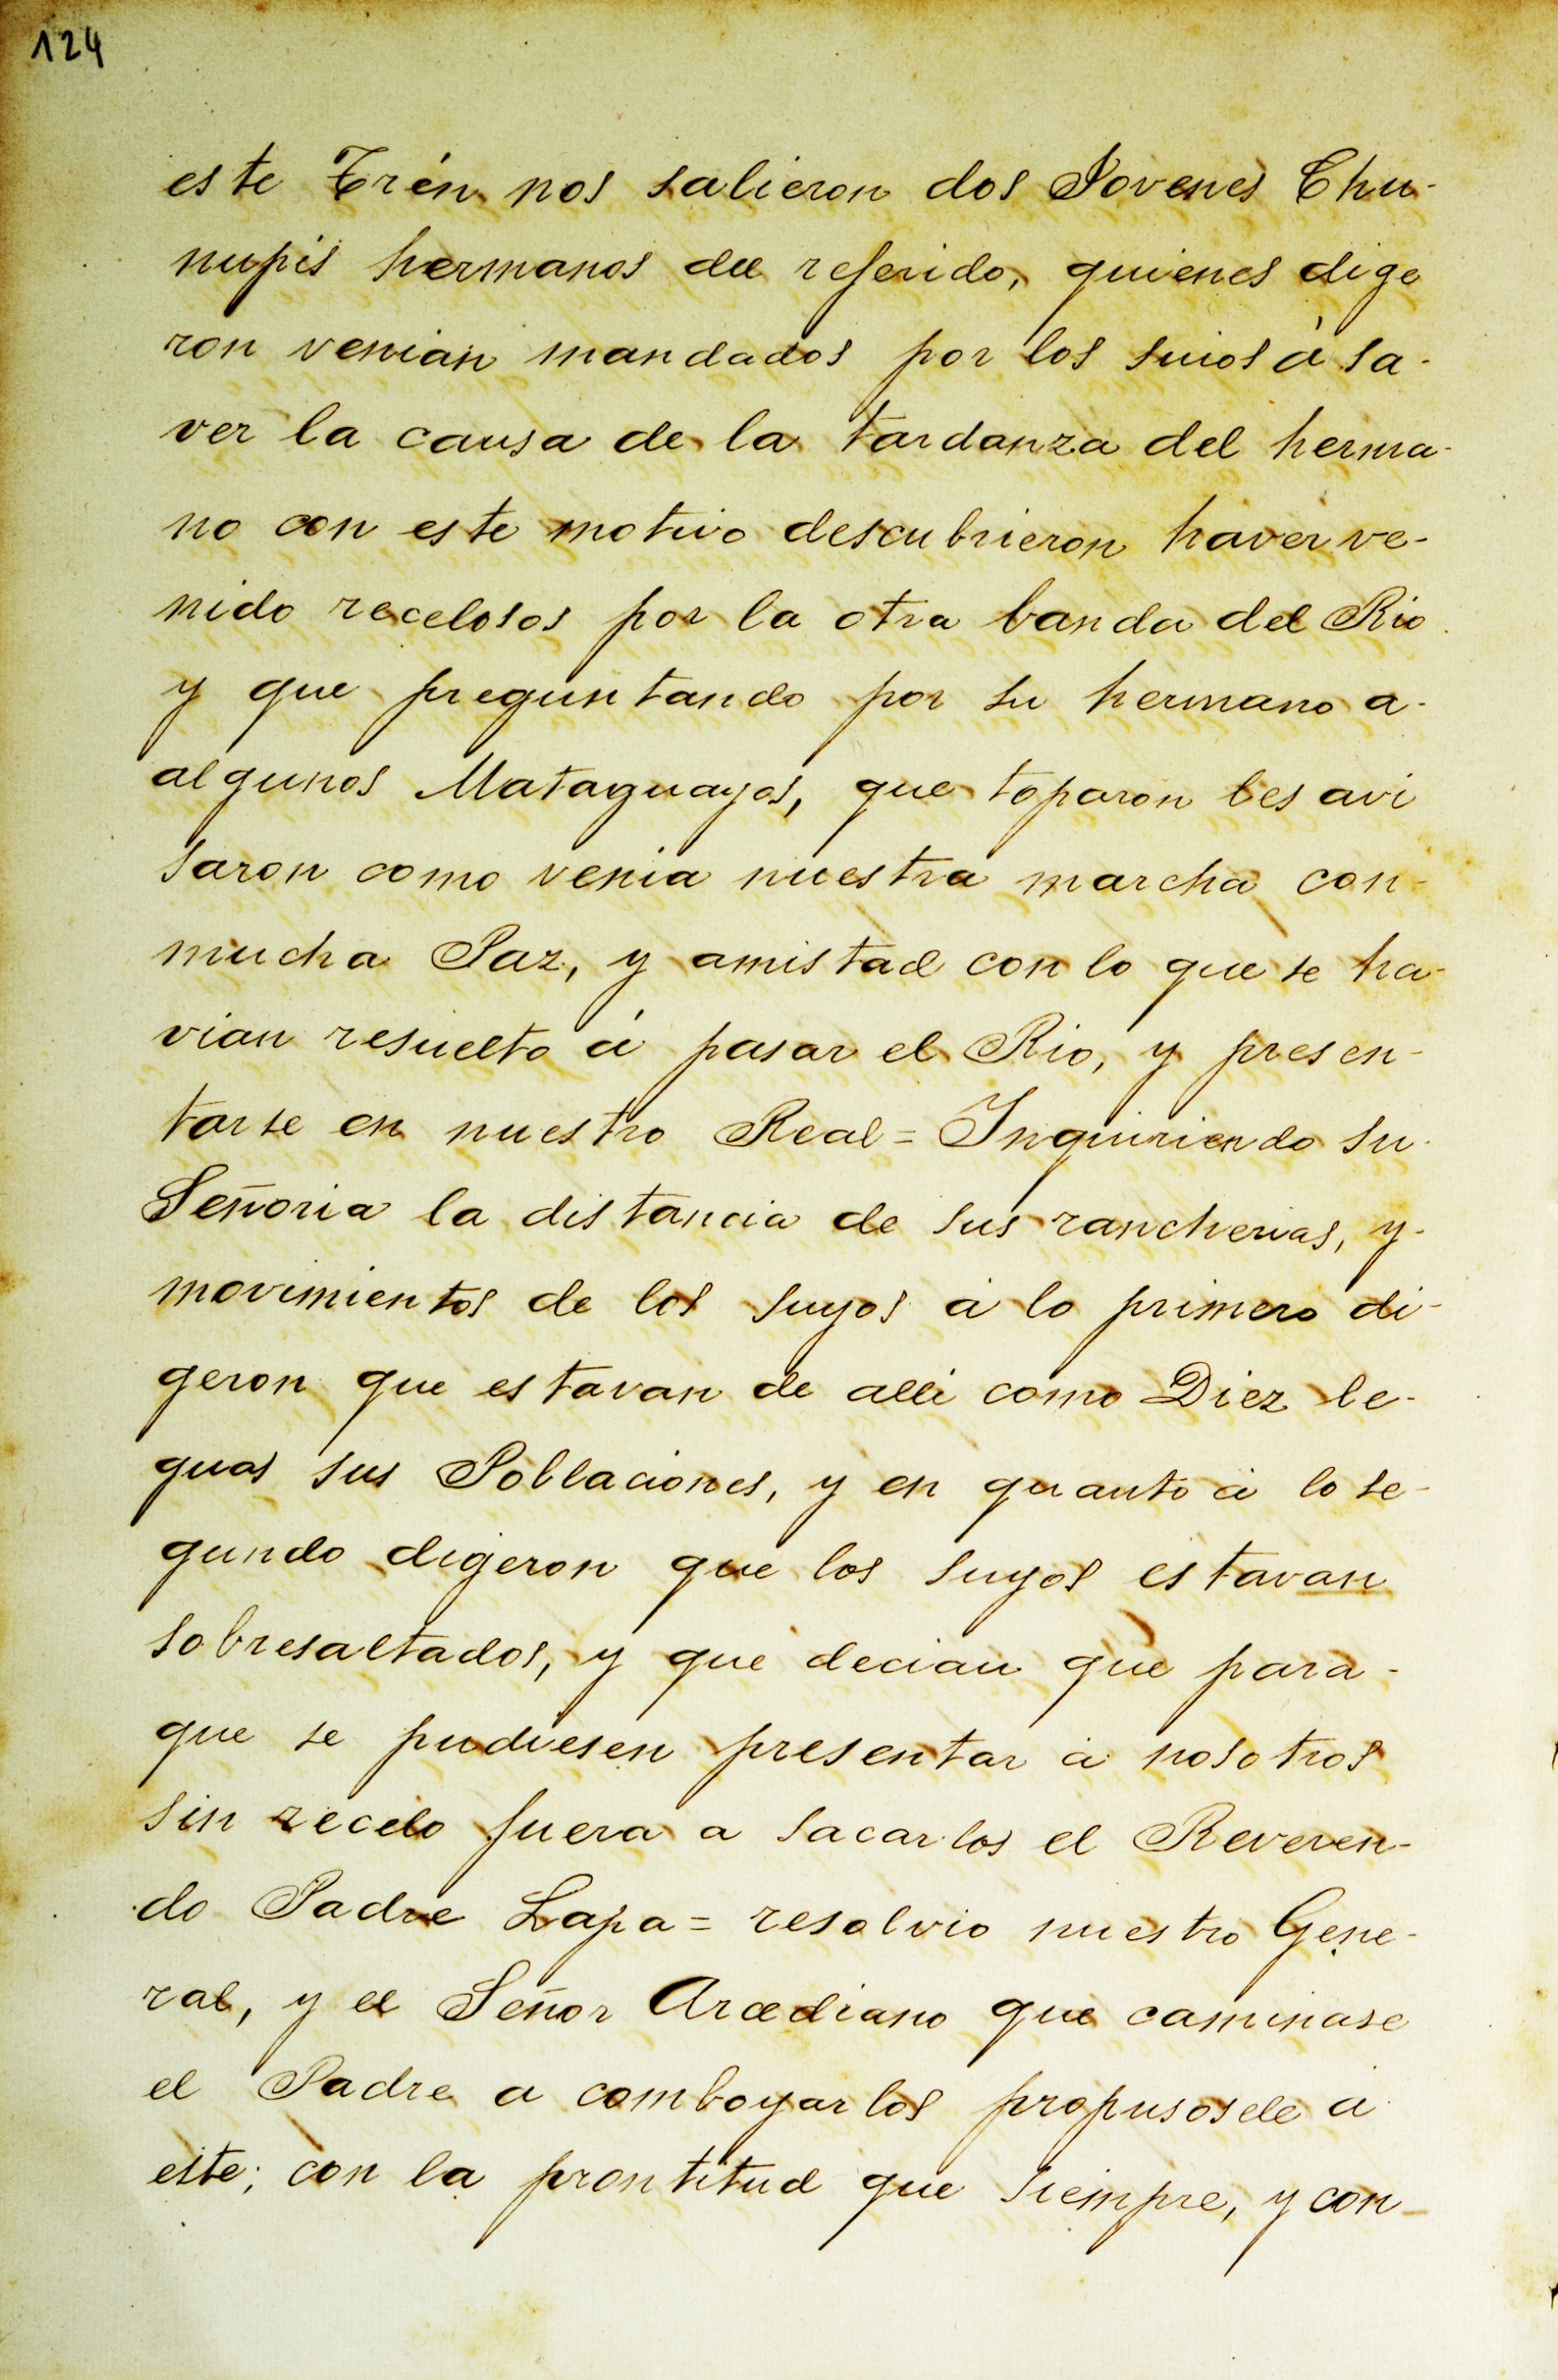 124
este Trén nos salieron dos Jovenes Chu-
nupis hermanos del referido, quienes dige
ron venian mandados por los suios à sa-
ver la causa de la tardanza del herma-
no con este motivo descubrieron haver ve-
nido recelosos por la otra banda del Rio
y que preguntando por su hermano a-
algunos Mataguayos, que toparon les avi
saron como venia nuestra marcha con-
mucha Paz, y amistad con lo que se ha-
vian resuelto á pasar el Rio, y presen-
tarse en nuestro Real = Inquiriendo su
Señoria la distancia de sus rancherias, y-
movimientos de los suyos á lo primero di-
geron que estavan de alli como Diez le-
guas sus Poblaciones, y en quanto á lo se-
gundo digeron que los suyos estavan
sobresaltados, y que decian que para-
que se pudiesen presentar á nosotros
sin recelo fuera a sacarlos el Reveren-
do Padre Lapa = resolvio nuestro Gene-
ral, y el Señor Arcediano que caminase
el Padre a comboyarlos propusosele á
este; con la prontitud que siempre, y con-